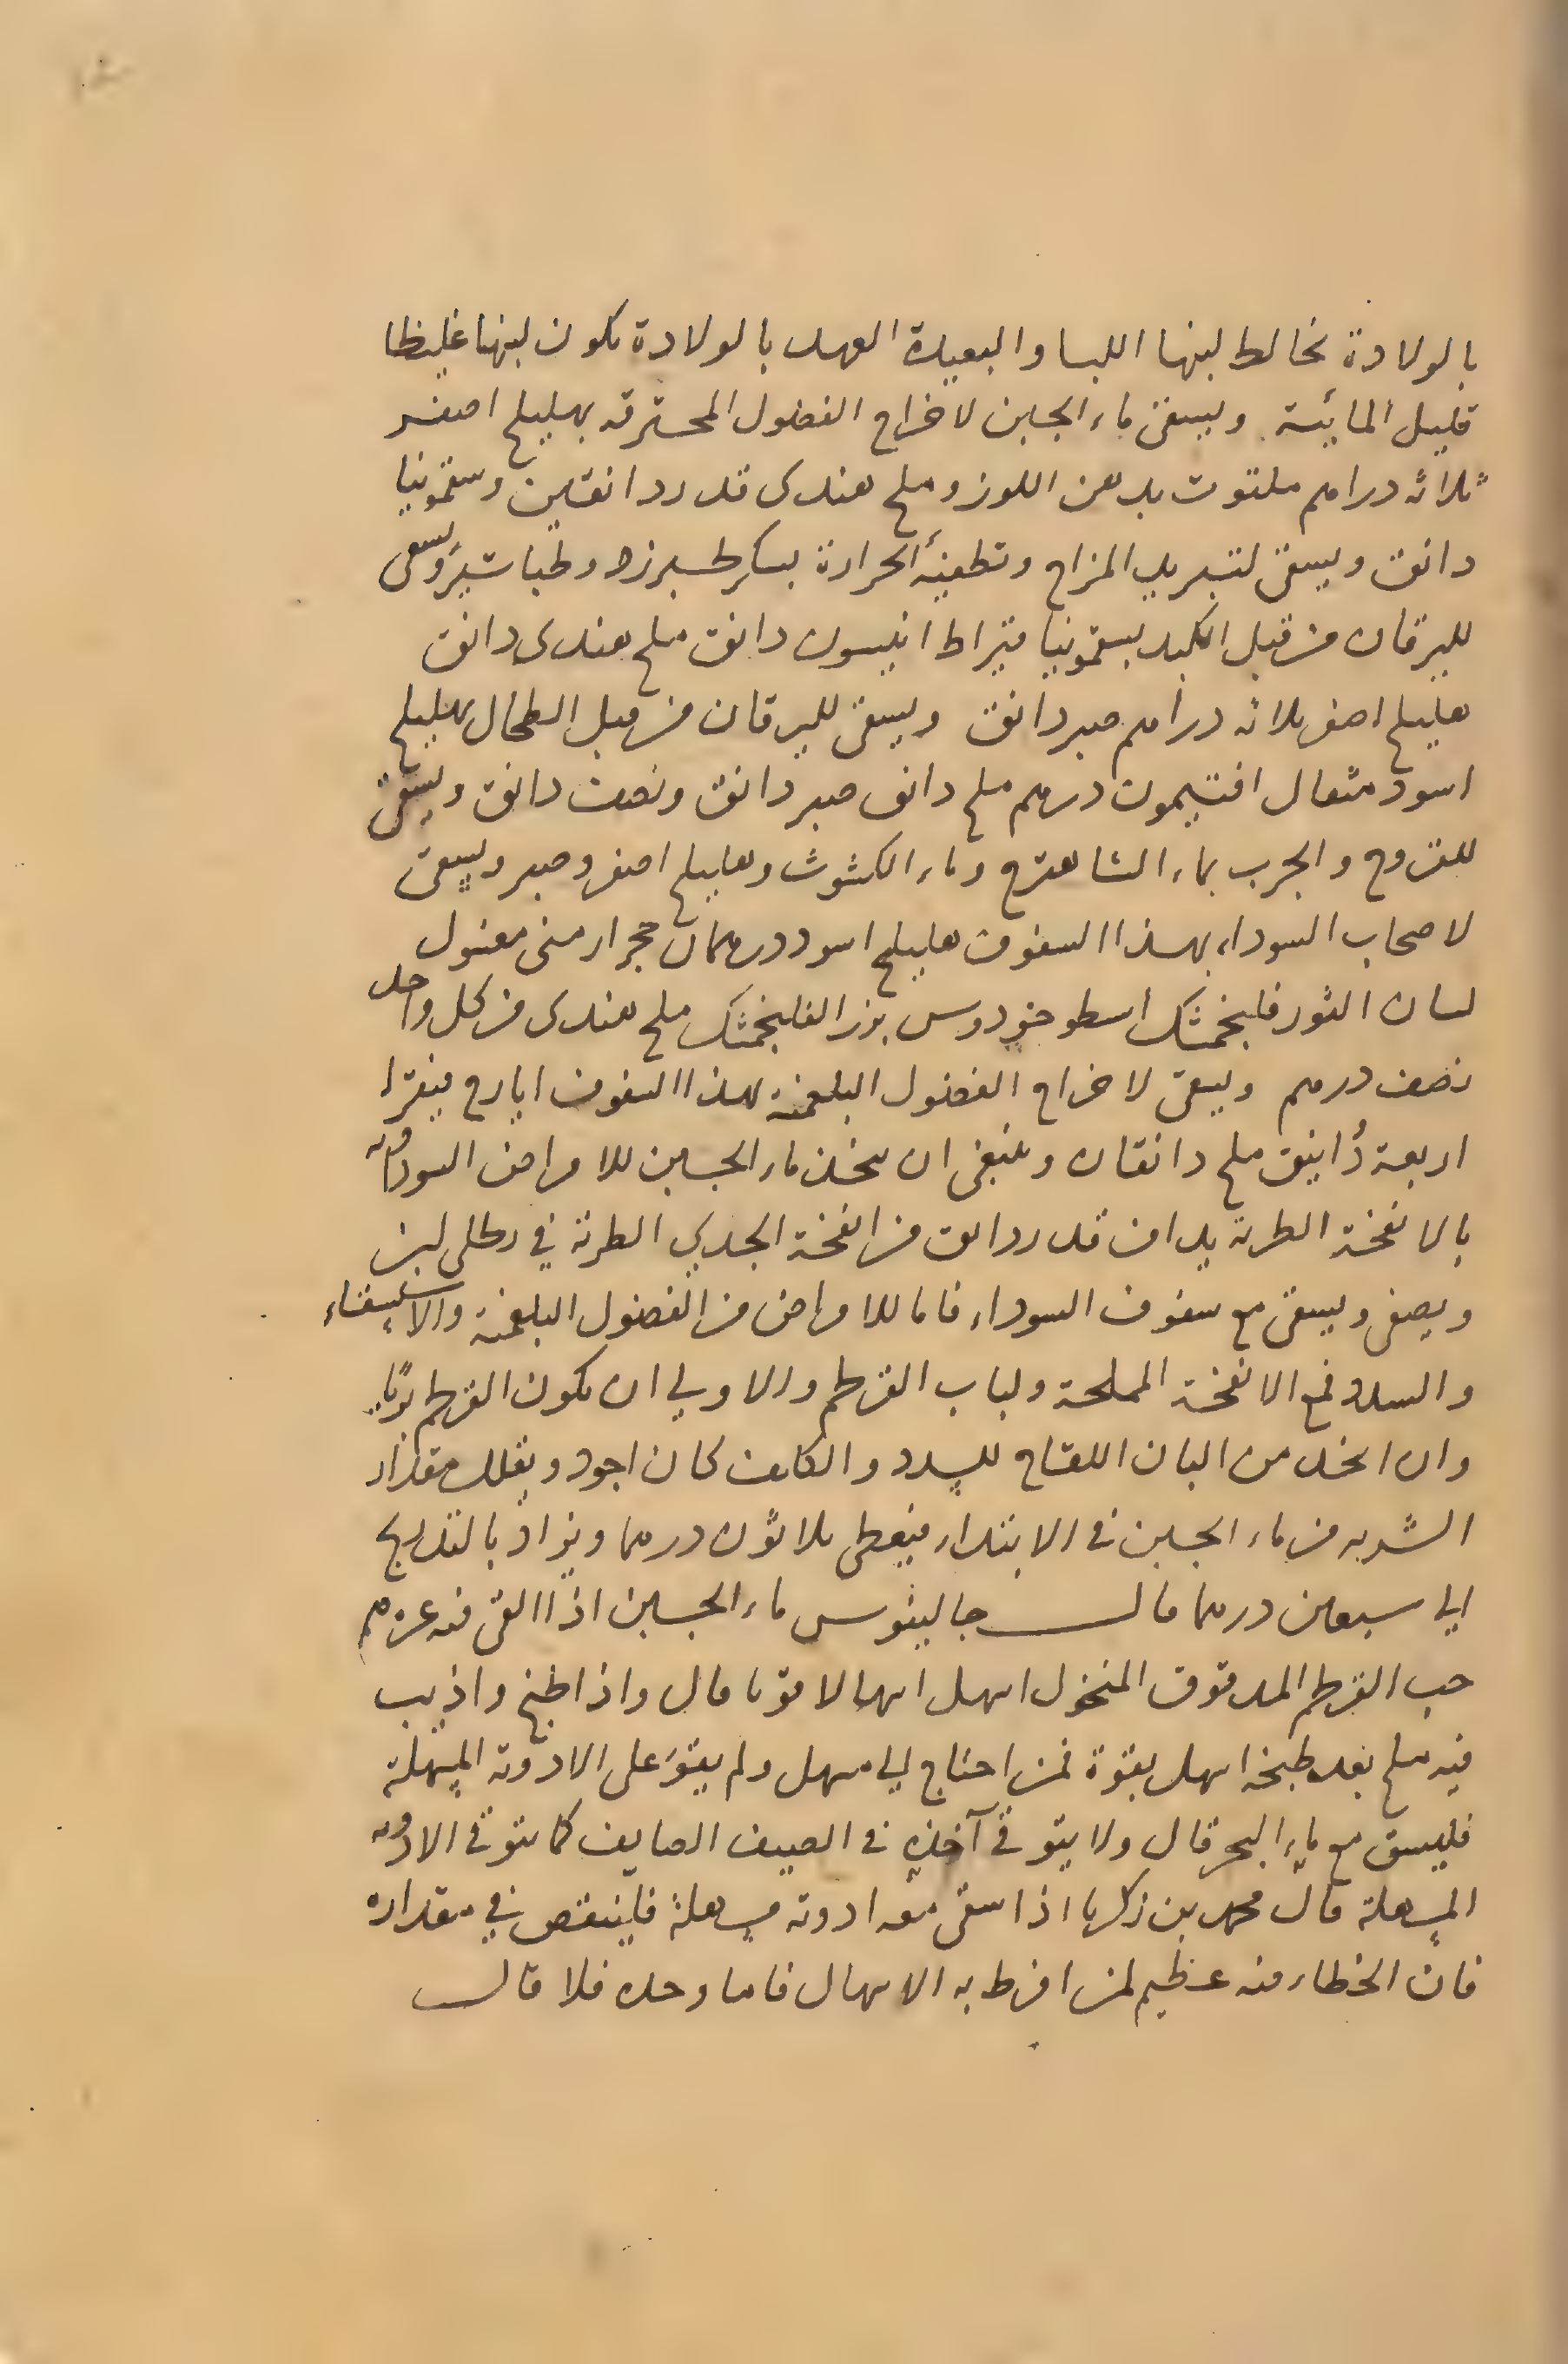 بالولادة يخالط لبنها اللبا والبعيدة العهد بالولادة يكون لبنها غليظا
قليل المائية ويسقى ماء الجبن لاخراج الفضول المحترقه بهليلج اصفر
ثلاثه دراهم ملتوت بدهن اللوز وملح هندى قدر دانقين وسقمونيا
دانق ويسقى لتبريد المزاج وتطفيه الحرارة بسكر طبرزد وطباشير ويسقى
لليرقان من قبل الكبد بسقمونيا قيراط انيسون دانق ملح هندى دانق
هليلج اصفر ثلاثه دراهم صبر دانق ويسقى لليرقان من قبل الطحال بهليلج
اسود مثقال افتيمون درهم ملح دانق صبر دانق ونصف دانق ويسقى
للقروح والجرب بماء الشاهترج وماء الكشوث وهليلج اصفر وصبر ويسقى
لاصحاب السوداء بهذا السفوف هليلج اسود درهمان حجر ارمنى مغسول
لسان الثور فلنجمشك اسطوخودوس بزر الفلنجمشك ملح هندى من كل واحد
نصف درهم ويسقى لاخراج الفضول البلغمية بهذا السفوف ايارج فيقرا
اربعة دوانيق ملح دانقان وينبغى ان يتخذ ماء الجبن للامراض السوداويه
بالانفخة الطرية يداف قدر دانق من انفخة الجدي الطرية في رطلى لبن
ويصفى ويسقى مع سفوف السوداء فاما للامراض من الفضول البلغمية والاستسقاء
والسدد فمع الانفخة المملحة ولباب القرطم والاولي ان يكون القرطم بريا
وان اتخذ من البان اللقاح للسدد والكلف كان اجود ويقلل مقدار
الشربه من ماء الجبن فى الابتداء فيعطى ثلاثون درهما ويزاد بالتدريج
الي سبعين درهما قال جالينوس ماء الجبن اذا القى فيه
حب القرطم المدقوق المنخول اسهل اسهالا قويا قال واذا طبخ واذيب
فيه ملح بعد طبخه اسهل بقوة فمن احتاج الي مسهل ولم يقو على الادوية المسهلة
فليسق مع ماء البحر قال ولا يتوقى آخذه فى الصيف الصايف كما يتوقى الادويه
المسهلة قال محمد بن زكريا اذا سقى معه ادوية مسهلة فلينقص في مقداره
فان الخطاء منه عظيم لمن افرط به الاسهال فاما وحده فلا قال